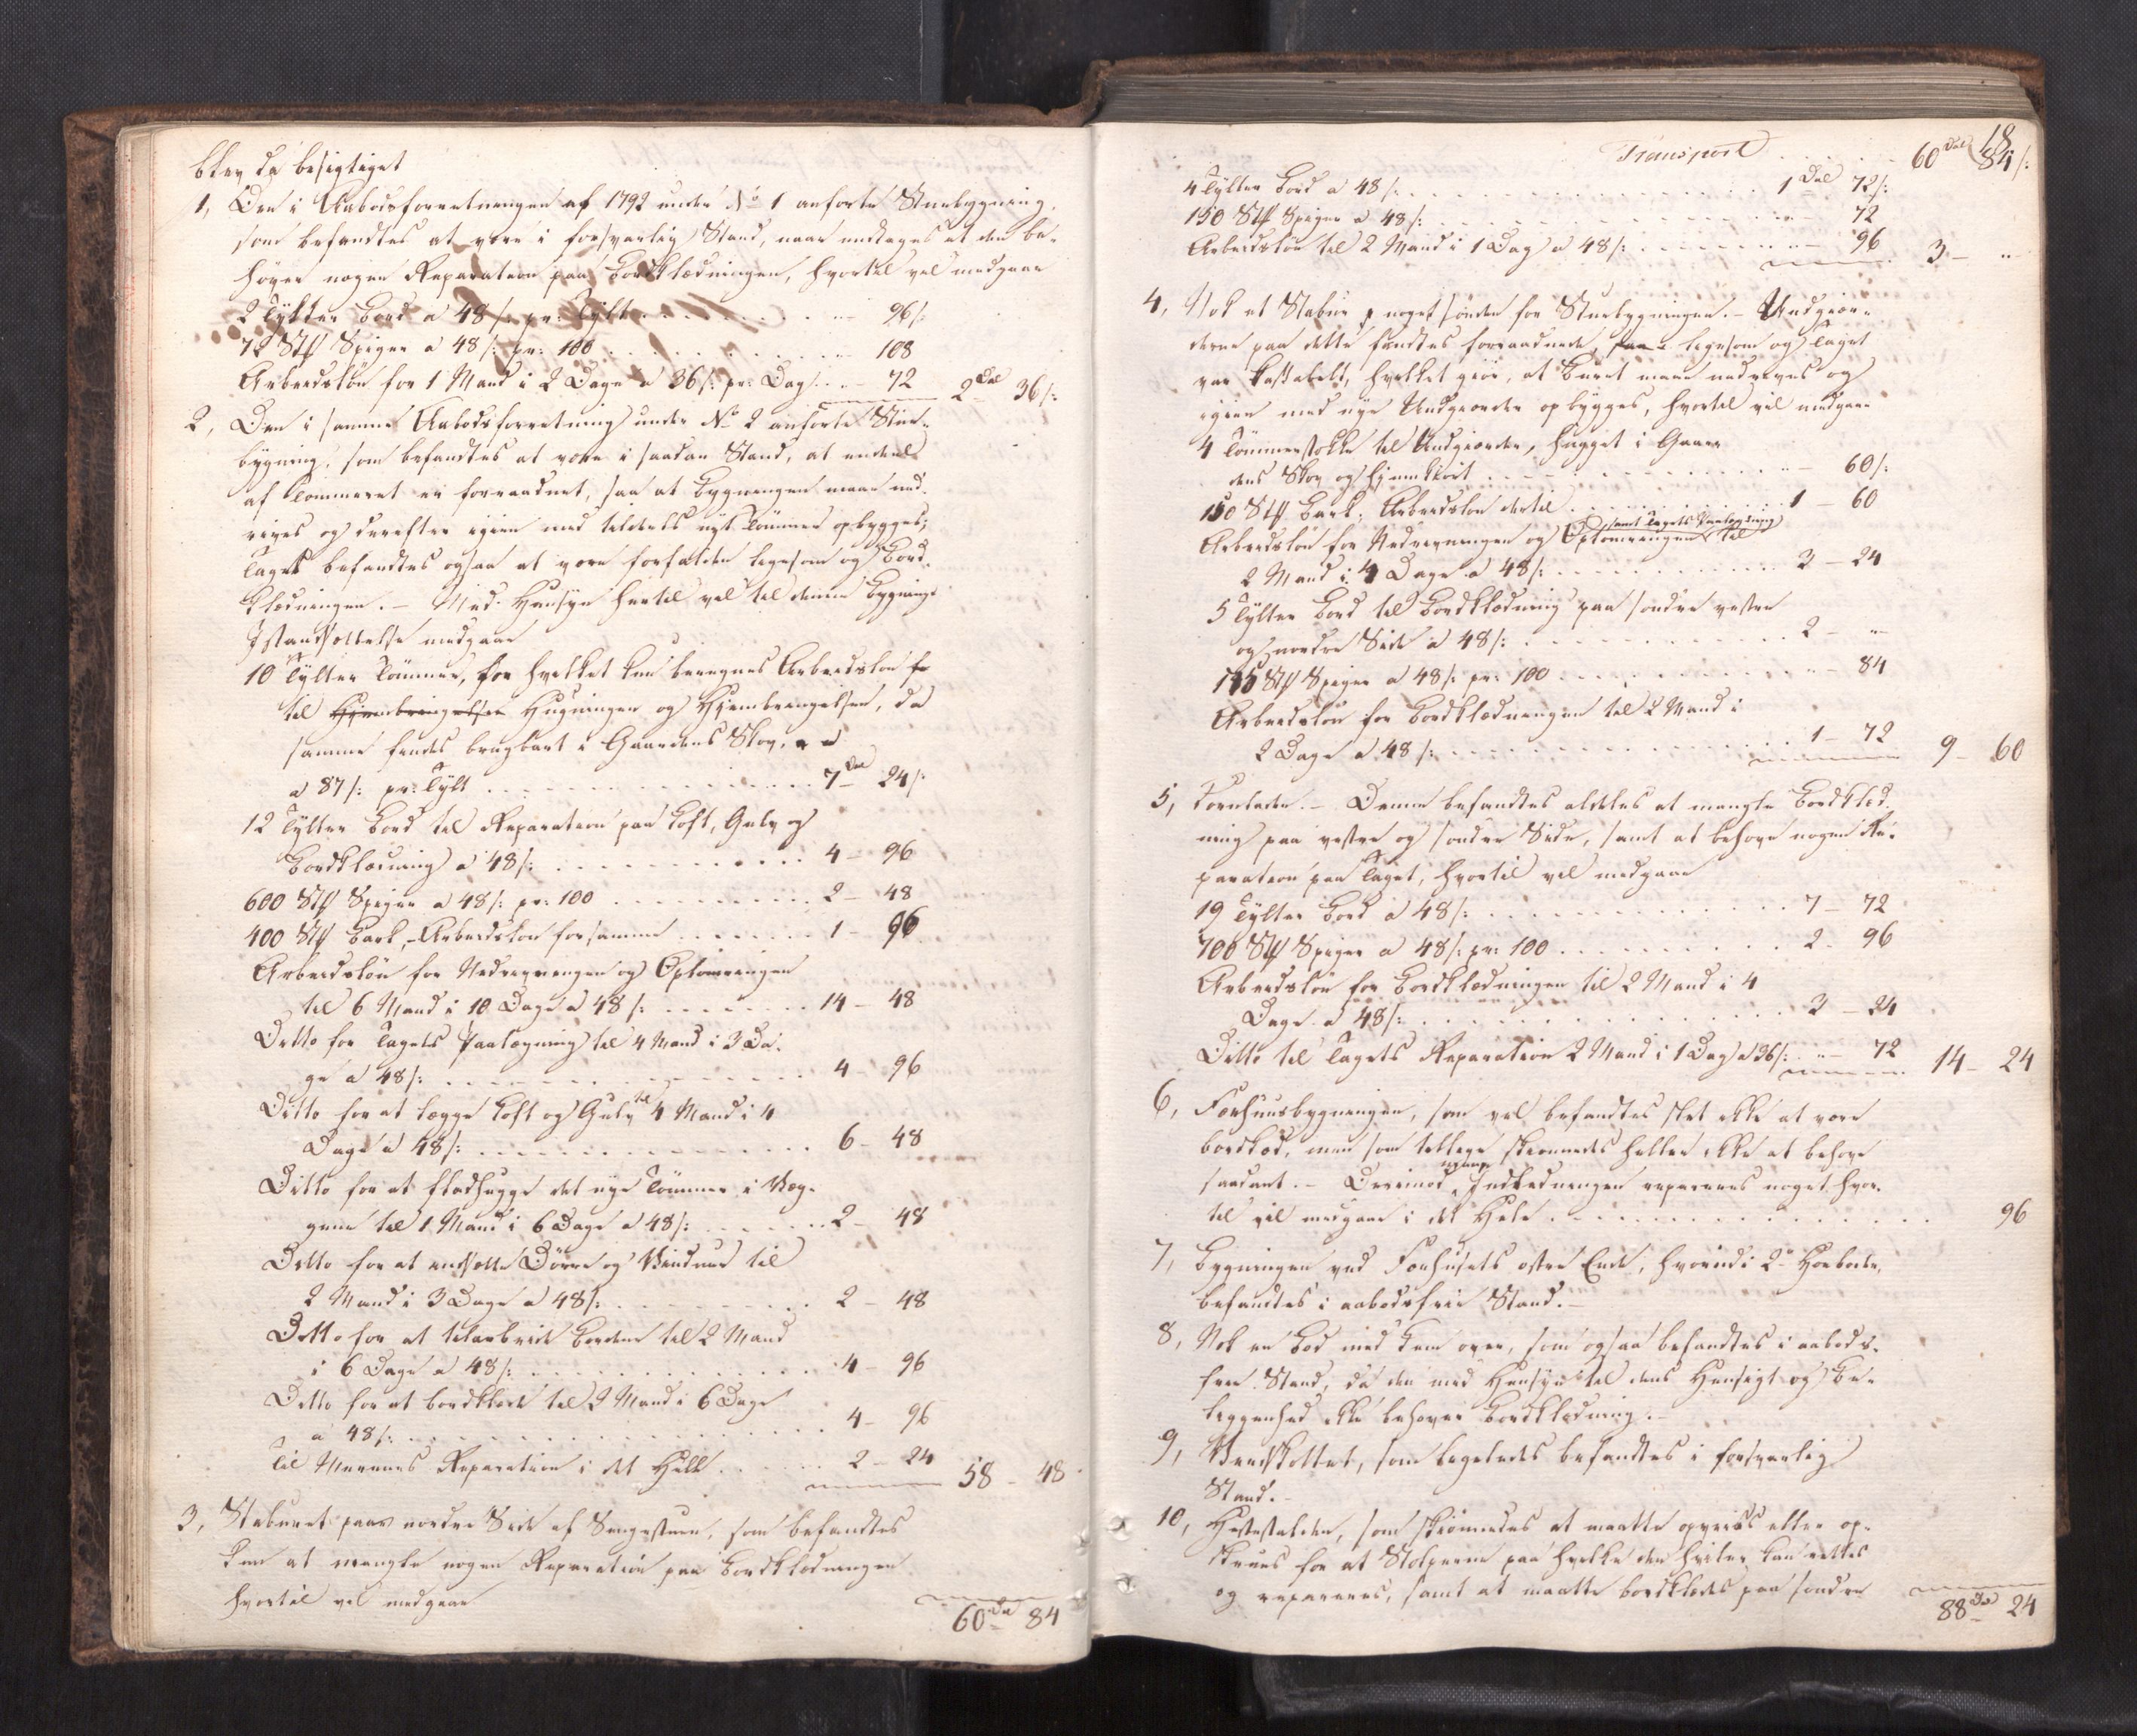 blev da besigtiget
1, Den i Aabodsforretningen af 1792 under No 1 anførte Stuebygning,
som befandtes at være i forsvarlig Stand, naar undtages at den be-
høver nogen Reparation paa Bordklædningen, hvortil vil medgaae
2 Tylter Bord a 48 /: pr: Tylt . . . . . . . " - 96 /:
72 Stk Spiger a 48 /: pr: 100 . . . . . . . " - 108
Arbeidsløn for 1 Mand i 2 Dage a 36 /: pr: Dag . . - 72 2 Dal 36 /:
2, Den i samme Aabodsforretning under No 2 anførte Stue-
bygning, som befandtes at være i saadan Stand, at endeel
af Tømmeret er forraadnet, saa at Bygningen maae ned-
rives og derefter igien med tildeels nyt Tømmer opbygges;
Taget befandtes ogsaa at være forfalden ligesom og Bord-
klædningen. - Med Hensyn hertil vil til denne Bygnings
Istandsættelse medgaae
10 Tylter Tømmer, for hvilket kun beregnes Arbeidsløn for
til Hjembringelsen Hugningen og Hjembringelsen, da
samme findes brugbart i Gaardens Skov, a
a 87 /: pr: Tylt . . . . . . . 7 Dal 24 /:
12 Tylter Bord til Reparation paa Loft, Gulv og
Bordklædning a 48 /: . . . . . . . 4 - 96
600 Stk Spiger a 48 /: pr: 100 . . . . . . . 2 - 48
400 Stk Bark, - Arbeidsløn for samme . . . . . . . 1 - 96
Arbeidsløn for Nedrivningen og Optømringen
til 6 Mand i 10 Dage a 48 /: . . . . . . . 14 - 48
Ditto for Tagets Paalægning til 4 Mand i 3 Da-
ge a 48 /: . . . . . . . 4 - 96
Ditto for at lægge Loft og Gulv til 4 Mand i 4
Dage a 48 /: . . . . . . . 6 - 48
Ditto for at fladhugge det nye Tømmer i Væg-
gene til 1 Mand i 6 Dage a 48 /: . . . . . . . 2 - 48
Ditto for at indsætte Dørre og Vinduer til
2 Mand i 3 Dage a 48 /: . . . . . . . 2 - 48
Ditto for at tilarbeide Bordene til 2 Mand
i 6 Dage a 48 /: . . . . . . . 4 - 96
Ditto for at bordklæde til 2 Mand i 6 Dage
a 48 /: . . . . . . . 4 - 96
Til Muurens Reparation i det Hele . . . . . 2 - 24 58 - 48
3, Stabuuret paa nordre Side af Sengestuen, som befandtes
kun at mangle nogen Reparation paa Bordklædningen
hvortil vil medgaae
60 Dal 84
18
Transport . . . . . 60 Dal 84 /:
4 Tylter Bord a 48 /: . . . . . . . 1 Dal 72 /:
150 Stk Spiger a 48 /: . . . . . . . " - 72
Arbeidsløn til 2 Mand i 1 Dag a 48 /: . . . . . . . " - 96 3 - "
4, Nok et Stabuur noget sønden for Stuebygningen. - Undgiær-
derne paa dette fandtes forraadnede, ligesom og Taget
var kassabelt, hvilket giør, at Buret maae nedrives og
igien med nye Undgiærder opbygges, hvortil vil medgaae
4 Tømmerstokke til Undgiærder, hugget i Gaar-
dens Skov og hjemkiørt . . . . . . . " - 60 /:
150 Stk Bark; Arbeidsløn dertil . . . . . . . 1 - 60
Arbeidsløn for Nedrivningen og Optømringen samt Tagets Paalægning til
2 Mand i 4 Dage a 48 /: . . . . . . . 3 - 24
5 Tylter Bord til Bordklædning paa søndre vestre
og nordre Side a 48 /: . . . . . . . 2 - "
175 Stk Spiger a 48 /: pr: 100 . . . . . . . " - 84
Arbeidsløn for Bordklædningen til 2 Mand i
2 Dage a 48 /: . . . . . . . 1 - 72 9 - 60
5, Kornladen. - Denne befandtes aldeles at mangle Bordklæd-
ning paa vestre og søndre Side, samt at behøve nogen Re-
paration paa Taget, hvortil vil medgaae
19 Tylter Bord a 48 /: . . . . . . . 7 - 72
700 Stk Spiger a 48 /: pr: 100 . . . . . . . 2 - 96
Arbeidsløn for Bordklædningen til 2 Mand i 4
Dage a 48 /: . . . . . . . 3 - 24
Ditto til Tagets Reparation 2 Mand i 1 Dag a 36 /: . . " - 72 14 - 24
6, Forhuusbygningen, som vel befandtes slet ikke at være
bordklæd, men som tillige skiønnedes heller ikke at behøve
saadant. - Derimod Indklædningen repareres noget hvor-
til vil medgaae i det Hele . . . . . . . 96
7, Bygningen ved Forhusets østre Ende, hvorudi 2de Høeboder,
befandtes i aabodsfrie Stand. -
8, Nok en Bod med Lem over, som ogsaa befandtes i aabods-
frie Stand, da den med Hensyn til dens Hensigt og Be-
liggenhed ikke behøver Bordklædning. -
9, Veedskottet, som ligeledes befandtes i forsvarlig
Stand. -
10, Hestestalden, som skiønnedes at maatte oprives eller op-
skrues for at Stolperne paa hvilke den hviler kan rettes
og repareres, samt at maatte bordklædes paa søndre
88 Dal 24